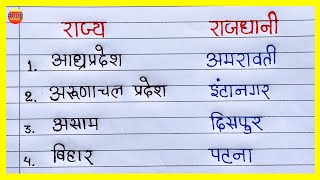 राज्य राजधानी
1. आध्रप्रदेश अमरावती
2. अरूणाचल प्रदेश इंटानगर
3. असाम दिसपुर
4. बिहार पटना